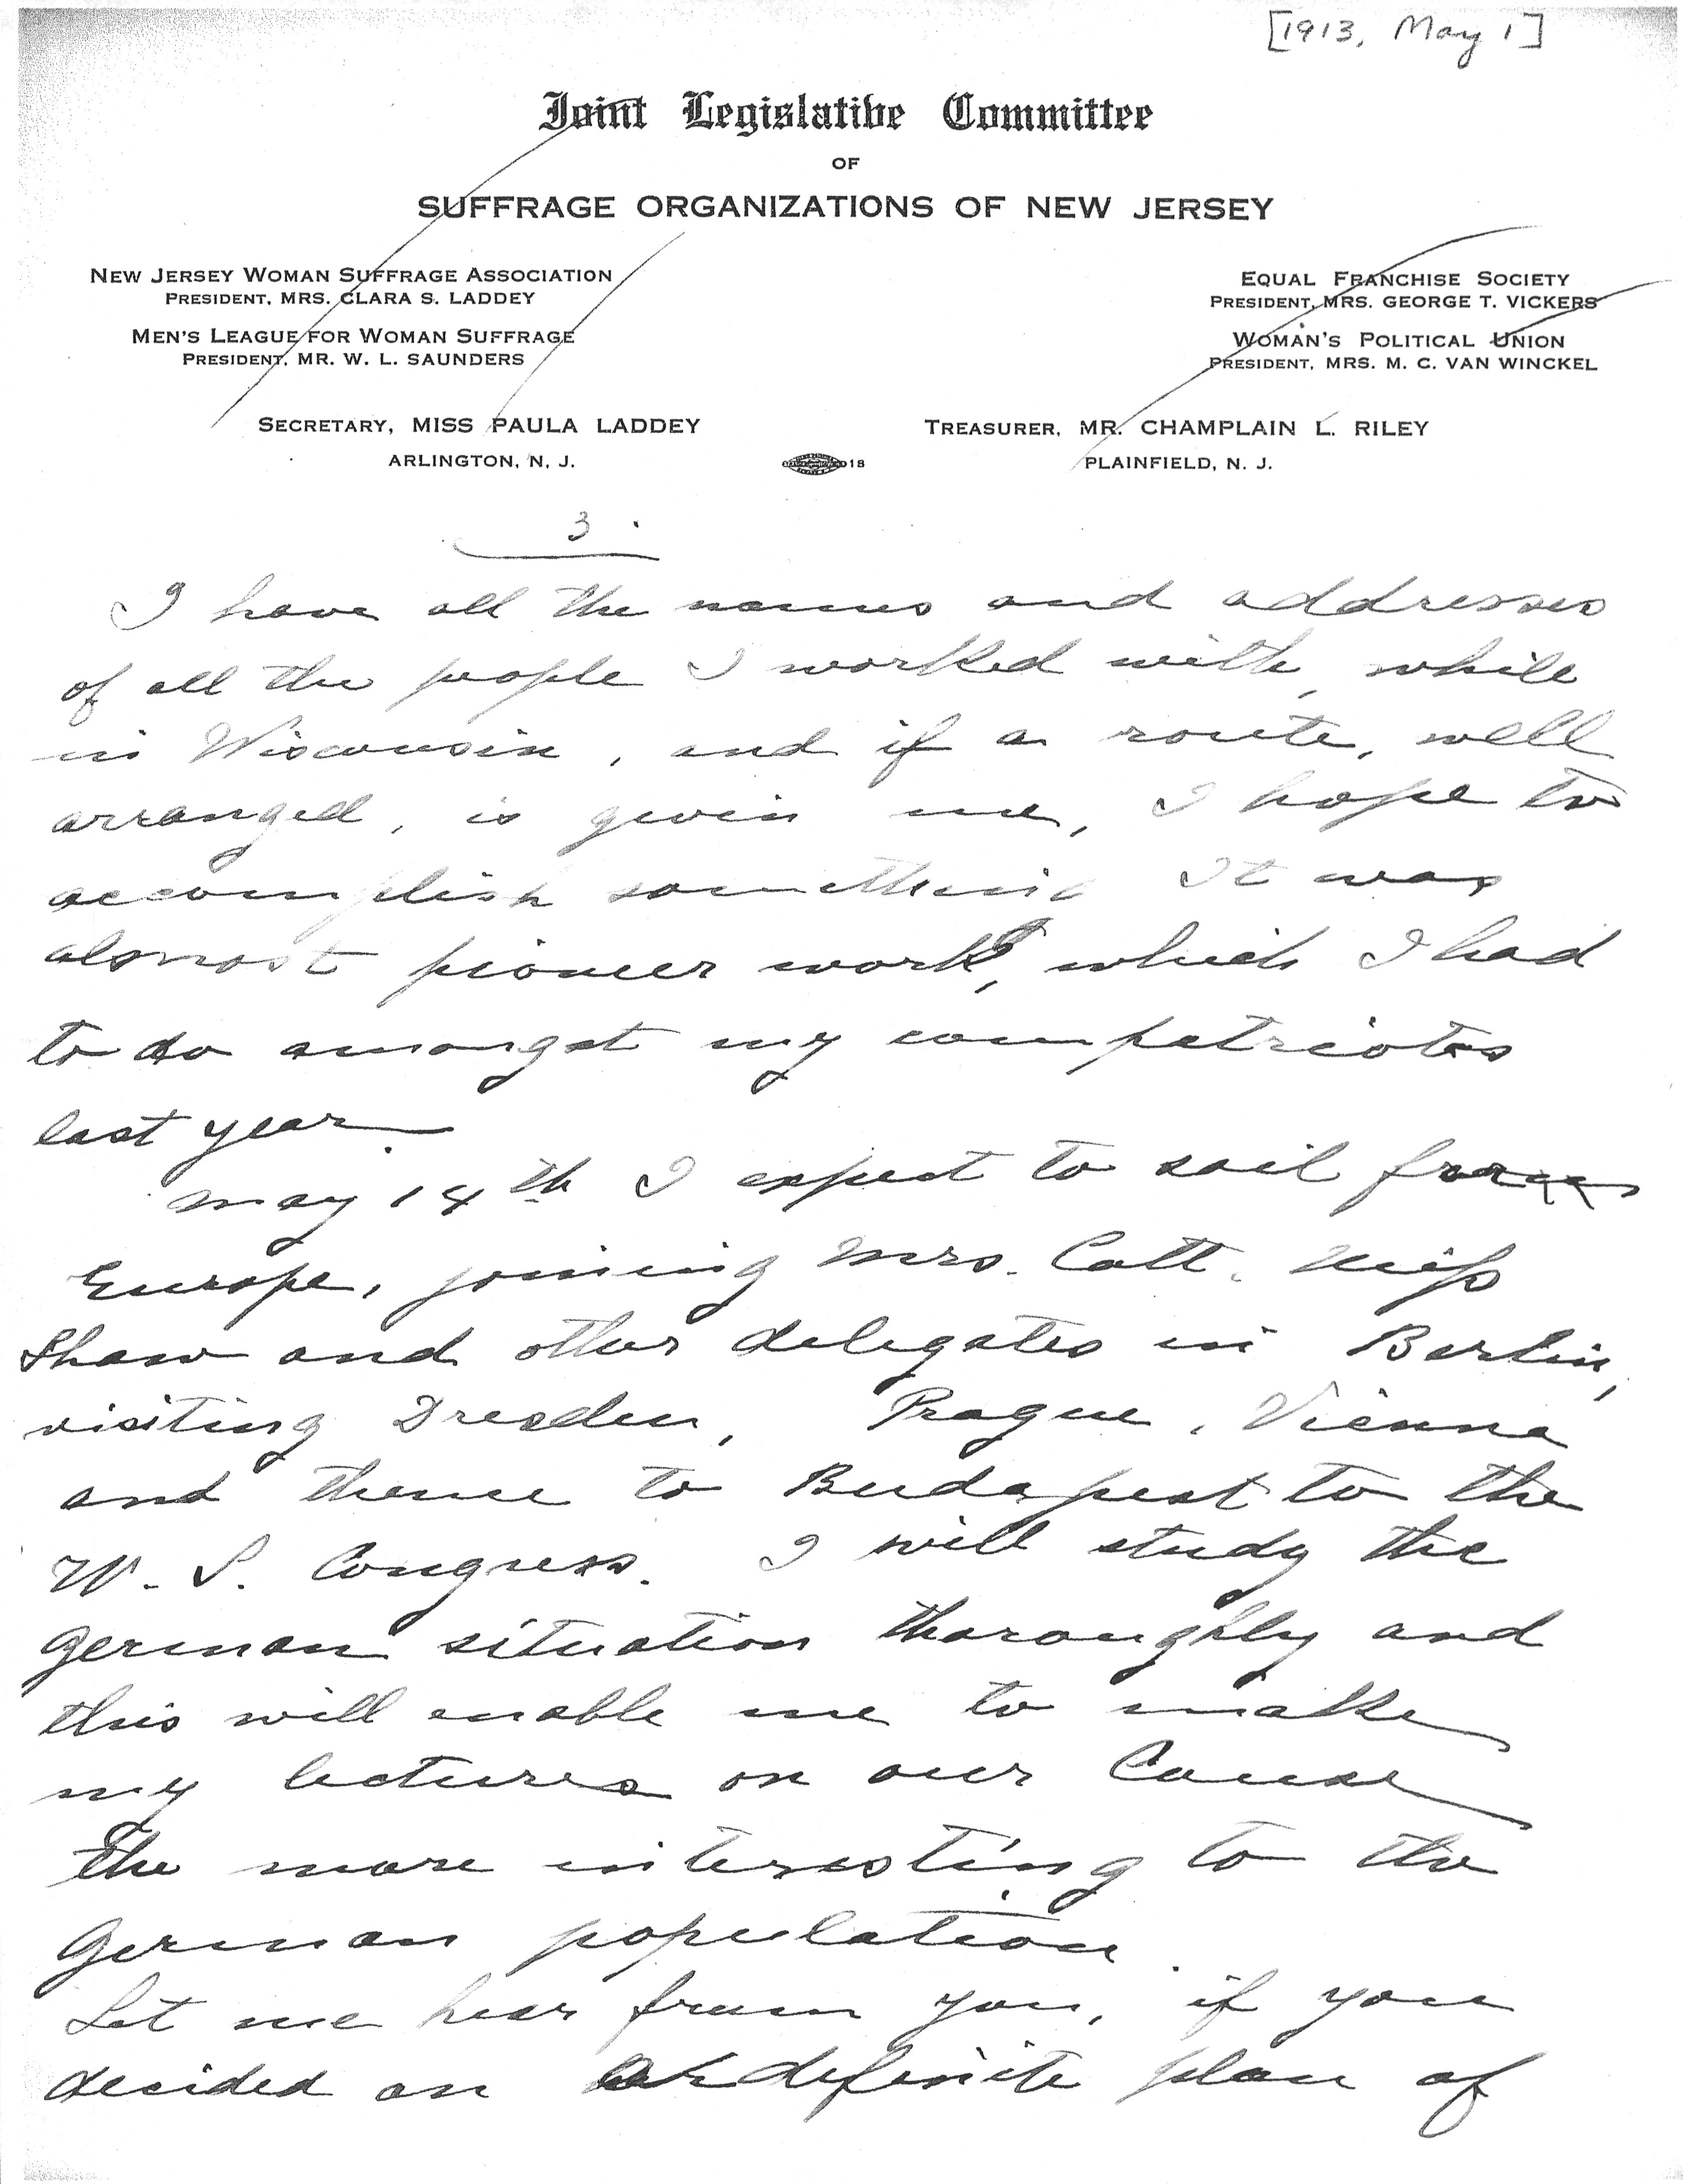 [1913, May 1]
Joint Legislative Committee
OF
SUFFRAGE ORGANIZATIONS OF NEW JERSEY
NEW JERSEY WOMAN SUFFRAGE ASSOCIATION
PRESIDENT, MRS. CLARA S. LADDEY
MEN'S LEAGUE FOR WOMAN SUFFRAGE
PRESIDENT, MR. W. L. SAUNDERS
EQUAL FRANCHISE SOCIETY
PRESIDENT, MRS. GEORGE T. VICKERS
WOMAN'S POLITICAL UNION
PRESIDENT, MRS. M. C. VAN WINCKEL
SECRETARY, MISS PAULA LADDEY
ARLINGTON, N. J.
TREASURER, MR. CHAMPLAIN L. RILEY
PLAINFIELD, N. J.
18
3.
I have all the names and addresses
of all the people I worked with, while
in Wisconsin, and if a route, well
arranged, is given me, I hope to
accomplish something It was
almost pioneer work, which I had
to do amongst my compatriots
last year.
May 14th I expect to sail for
Europe, joining Mrs. Catt, Miss
Shaw and other delegates in Berlin,
visiting Dresden, Prague, Vienna
and thence to Budapest to the
W. S. Congress. I will study the
German situation thoroughly and
this will enable me to make
my lectures on our Cause
the more interesting to the
German population.
Let me hear from you, if you
decided on definite plan of